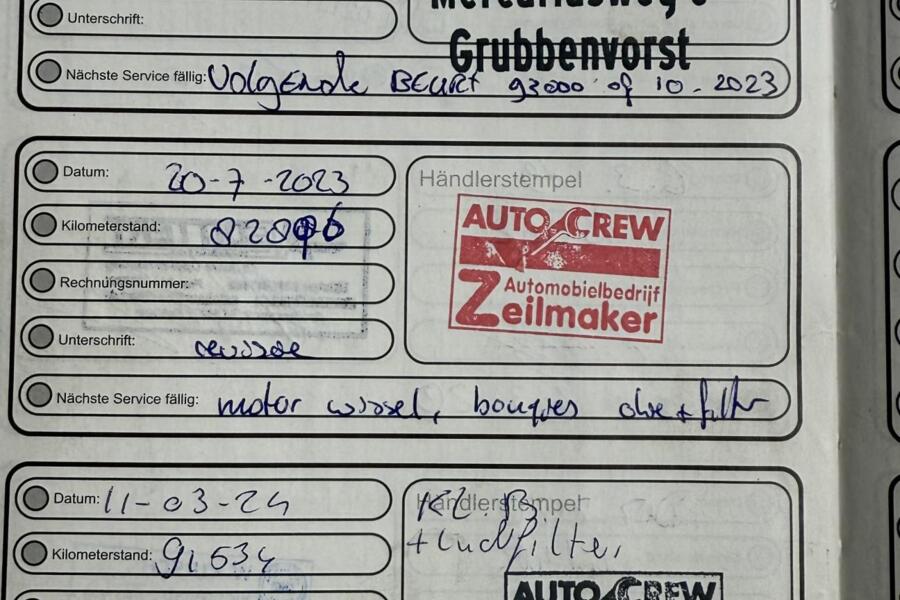 Unterschrift:
Grubbenvorst
Nächste Service fällig: Volgende BEURT 93000 of 10-2023
Datum: 20-7-2023
Händlerstempel
Kilometerstand:
AUTO CREW
Rechnungsnummer:
Automobielbedrijf
Zeilmaker
Unterschrift:
Nächste Service fällig: motor wissel, bougies olie + filter
Datum: 11-03-24
Händlerstempel
Kilometerstand: 91534
AUTO CREW